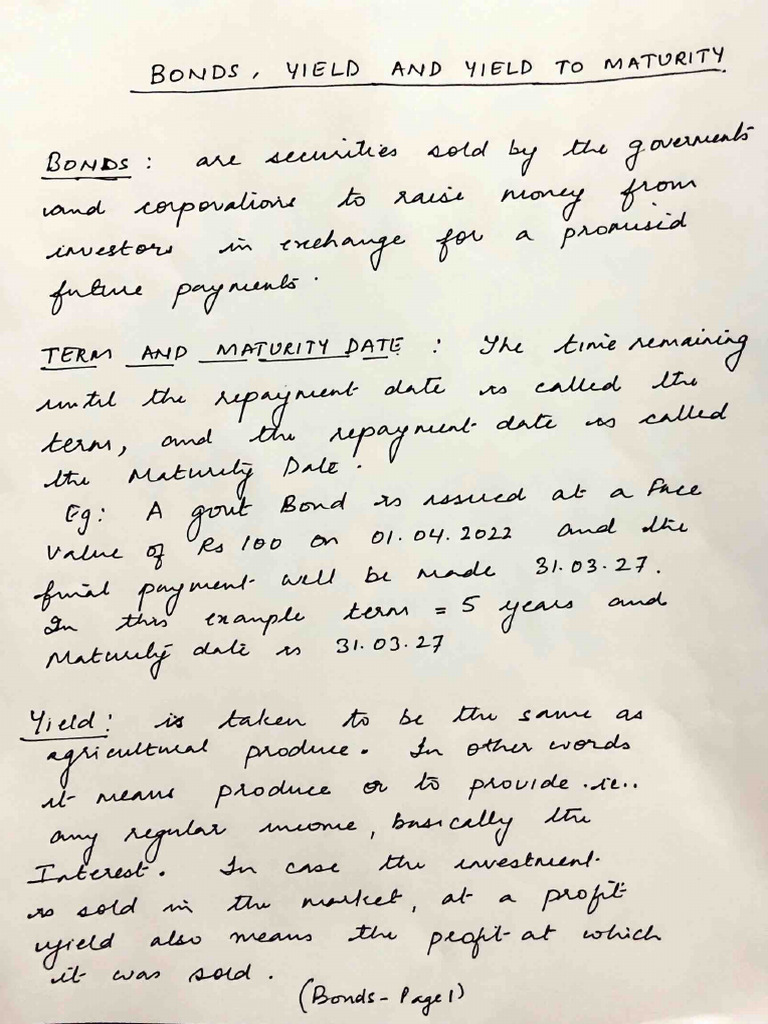 BONDS, YIELD AND YIELD TO MATURITY
BONDS: are securities sold by the goverments
and corporations to raise money from
investors in exchange for a promised
future payments.
TERM AND MATURITY DATE: The time remaining
until the repayment date is called the
term, and the repayment date is called
the Maturity Date.
Eg: A govt Bond is issued at a Face
Value of Rs 100 on 01.04.2022 and the
final payment will be made 31.03.27.
In this example term = 5 years and
Maturity date is 31.03.27
Yield: is taken to be the same as
agricultural produce. In other words
it means produce or to provide .ie..
any regular income, basically the
Interest. In case the investment
is sold in the market, at a profit
yield also means the profit at which
it was sold.
(Bonds - Page 1)